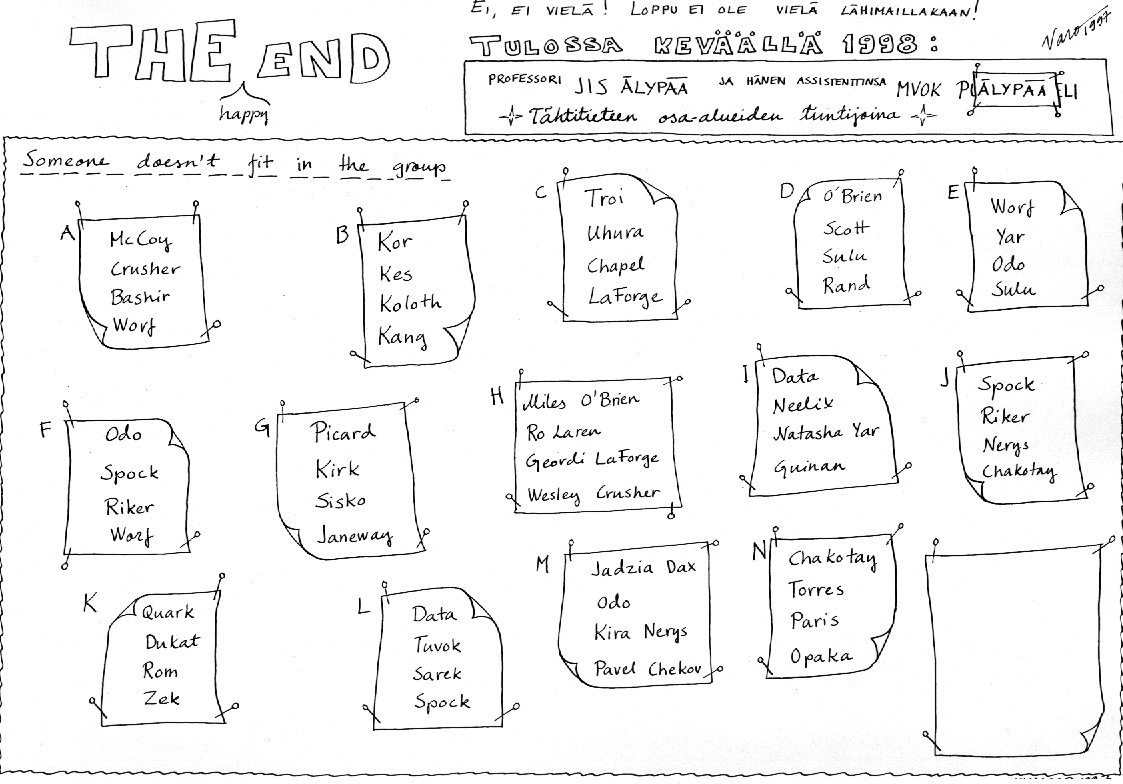 EI, EI VIELÄ! LOPPU EI OLE VIELÄ LÄHIMAILLAKAAN!
THE END
happy
TULOSSA KEVÄÄLLÄ 1998:
Varo 1997
PROFESSORI JIS ÄLYPÄÄ JA HÄNEN ASSISTENTTINSA MVOK ÄLYPÄÄ ELI
Tähtitieteen osa-alueiden tuntijoina
Someone doesn't fit in the group
A
McCoy
Crusher
Bashir
Worf
B
Kor
Kes
Koloth
Kang
C
Troi
Uhura
Chapel
LaForge
D
O'Brien
Scott
Sulu
Rand
E
Worf
Yar
Odo
Sulu
F
Odo
Spock
Riker
Worf
G
Picard
Kirk
Sisko
Janeway
H
Miles O'Brien
Ro Laren
Geordi LaForge
Wesley Crusher
I
Data
Neelix
Natasha Yar
Guinan
J
Spock
Riker
Nerys
Chakotay
K
Quark
Dukat
Rom
Zek
L
Data
Tuvok
Sarek
Spock
M
Jadzia Dax
Odo
Kira Nerys
Pavel Chekov
N
Chakotay
Torres
Paris
Opaka